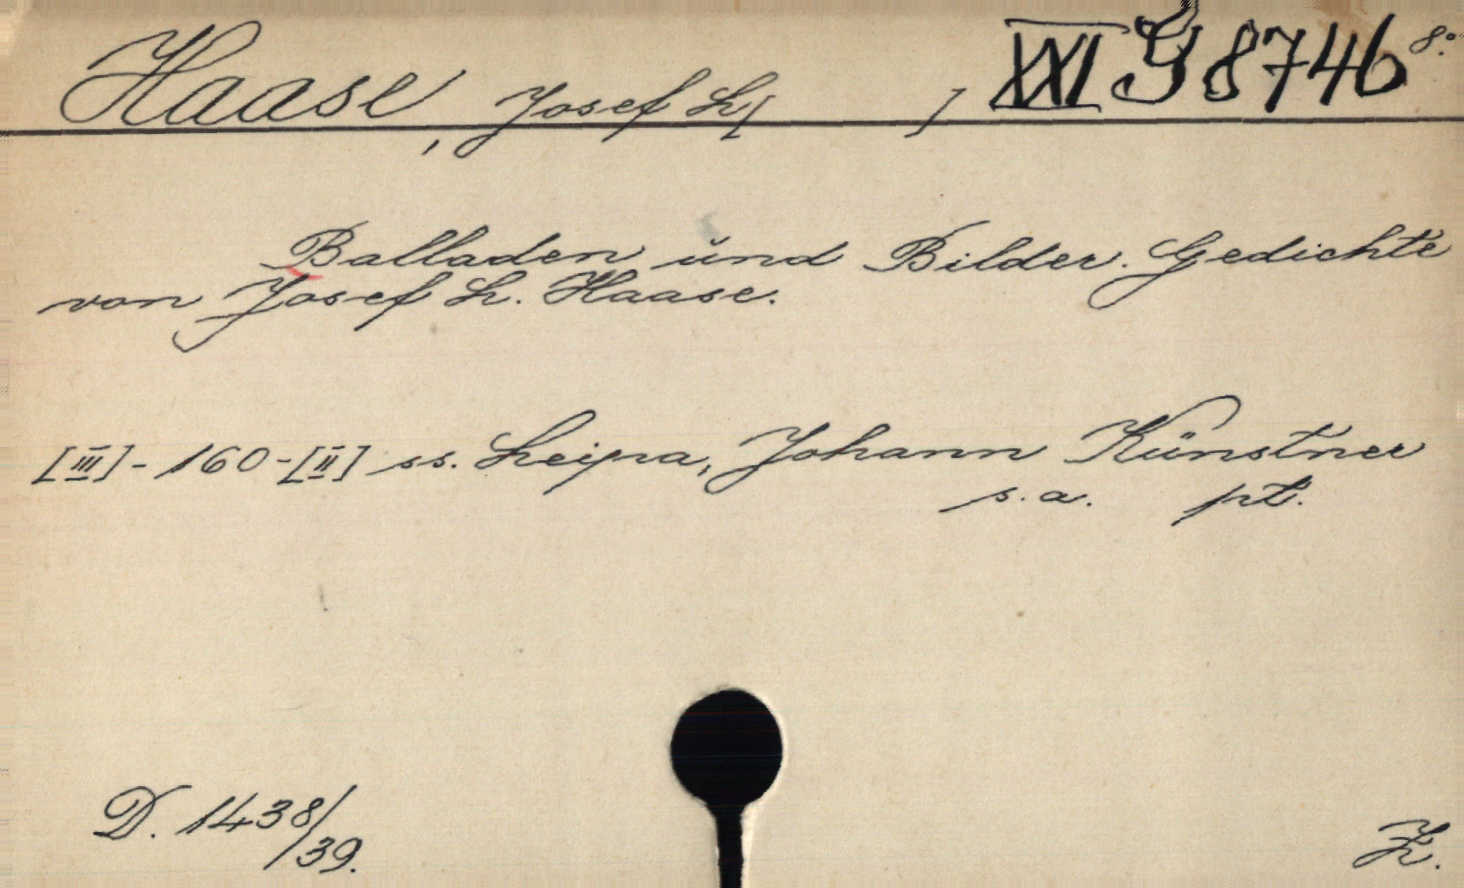 Haase, Josef L[ ] XXI G 8746 8°.
Balladen und Bilder. Gedichte
von Josef L. Haase.
[III] - 160 - [II] ss. Leipa, Johann Künstner
s. a. pt.
D. 1438/39.